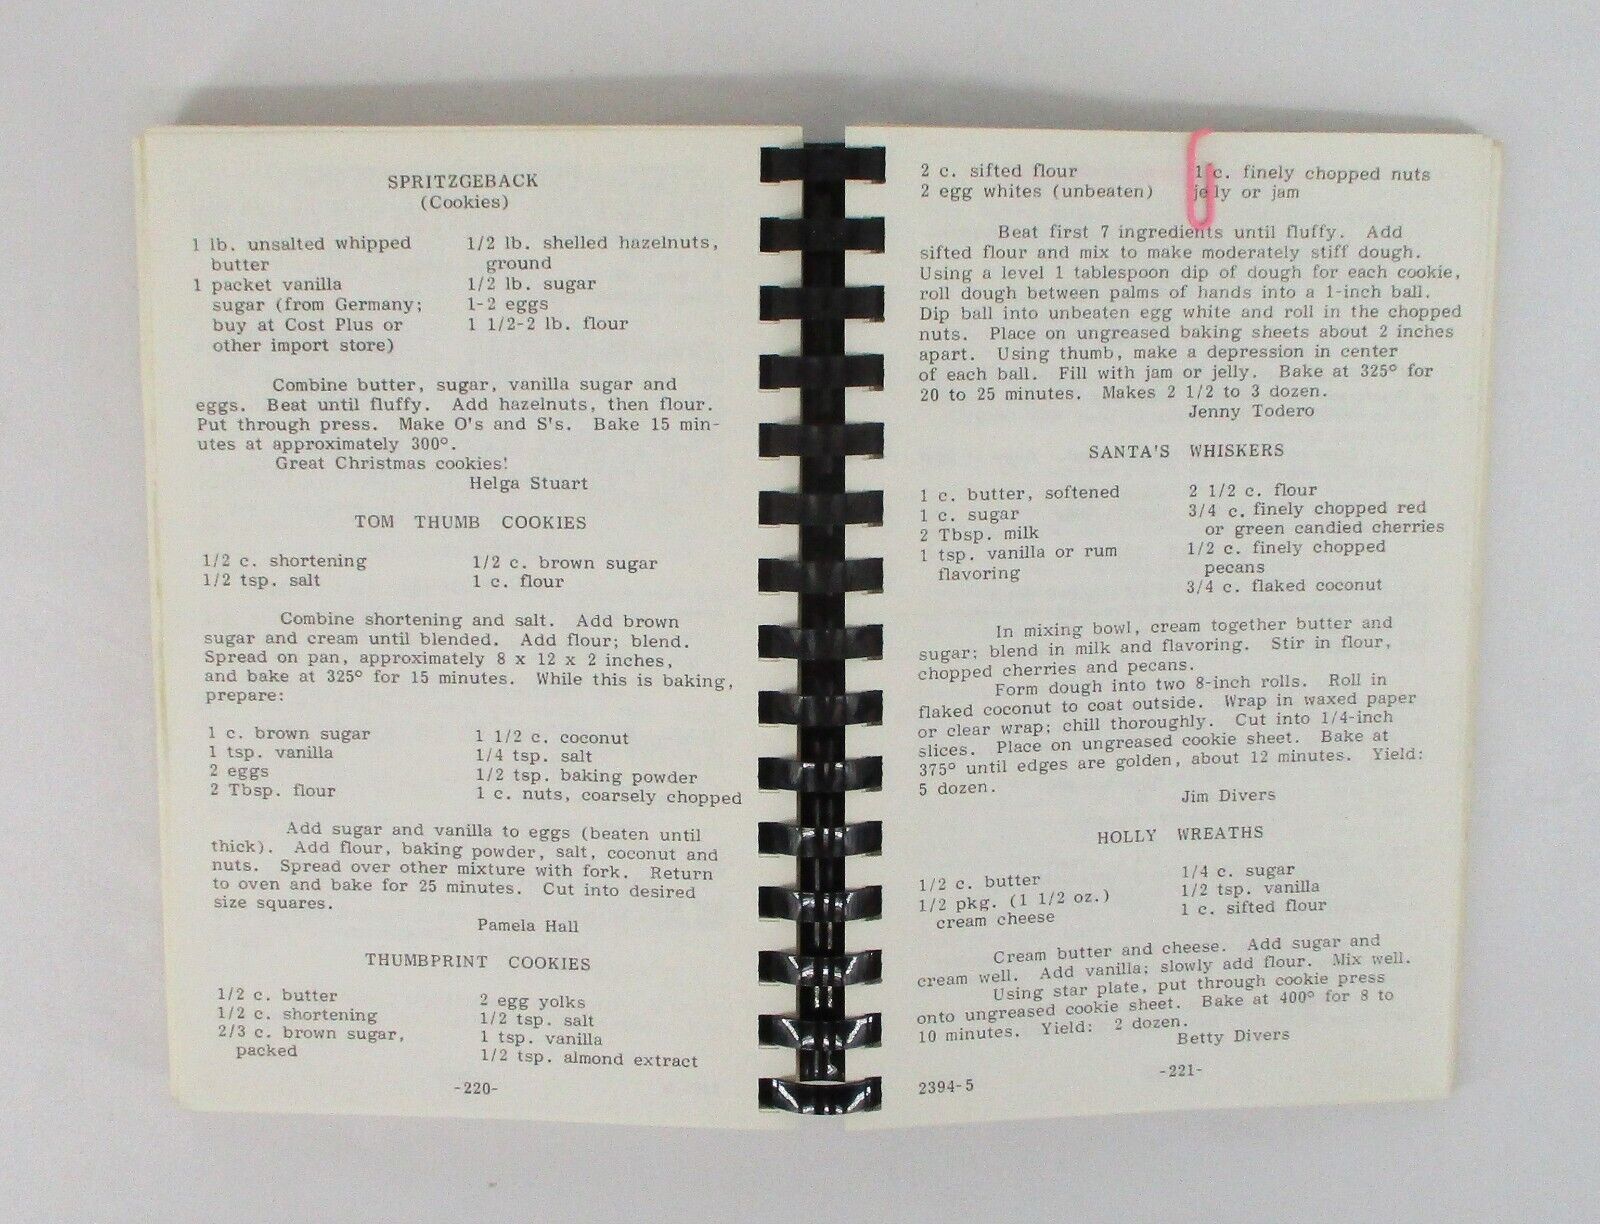 SPRITZGEBACK
(Cookies)
1 lb. unsalted whipped
butter
1 packet vanilla
sugar (from Germany;
buy at Cost Plus or
other import store)
1/2 lb. shelled hazelnuts,
ground
1/2 lb. sugar
1-2 eggs
1 1/2-2 lb. flour
Combine butter, sugar, vanilla sugar and
eggs. Beat until fluffy. Add hazelnuts, then flour.
Put through press. Make O's and S's. Bake 15 min-
utes at approximately 300°.
Great Christmas cookies!
Helga Stuart
TOM THUMB COOKIES
1/2 c. shortening
1/2 tsp. salt
1/2 c. brown sugar
1 c. flour
Combine shortening and salt. Add brown
sugar and cream until blended. Add flour; blend.
Spread on pan, approximately 8 x 12 x 2 inches,
and bake at 325° for 15 minutes. While this is baking,
prepare:
1 c. brown sugar
1 tsp. vanilla
2 eggs
2 Tbsp. flour
1 1/2 c. coconut
1/4 tsp. salt
1/2 tsp. baking powder
1 c. nuts, coarsely chopped
Add sugar and vanilla to eggs (beaten until
thick). Add flour, baking powder, salt, coconut and
nuts. Spread over other mixture with fork. Return
to oven and bake for 25 minutes. Cut into desired
size squares.
Pamela Hall
THUMBPRINT COOKIES
1/2 c. butter
1/2 c. shortening
2/3 c. brown sugar,
packed
2 egg yolks
1/2 tsp. salt
1 tsp. vanilla
1/2 tsp. almond extract
-220-
2 c. sifted flour
2 egg whites (unbeaten)
1 c. finely chopped nuts
jelly or jam
Beat first 7 ingredients until fluffy. Add
sifted flour and mix to make moderately stiff dough.
Using a level 1 tablespoon dip of dough for each cookie,
roll dough between palms of hands into a 1-inch ball.
Dip ball into unbeaten egg white and roll in the chopped
nuts. Place on ungreased baking sheets about 2 inches
apart. Using thumb, make a depression in center
of each ball. Fill with jam or jelly. Bake at 325° for
20 to 25 minutes. Makes 2 1/2 to 3 dozen.
Jenny Todero
SANTA'S WHISKERS
1 c. butter, softened
1 c. sugar
2 Tbsp. milk
1 tsp. vanilla or rum
flavoring
2 1/2 c. flour
3/4 c. finely chopped red
or green candied cherries
1/2 c. finely chopped
pecans
3/4 c. flaked coconut
In mixing bowl, cream together butter and
sugar; blend in milk and flavoring. Stir in flour,
chopped cherries and pecans.
Form dough into two 8-inch rolls. Roll in
flaked coconut to coat outside. Wrap in waxed paper
or clear wrap; chill thoroughly. Cut into 1/4-inch
slices. Place on ungreased cookie sheet. Bake at
375° until edges are golden, about 12 minutes. Yield:
5 dozen.
Jim Divers
HOLLY WREATHS
1/2 c. butter
1/2 pkg. (1 1/2 oz.)
cream cheese
1/4 c. sugar
1/2 tsp. vanilla
1 c. sifted flour
Cream butter and cheese. Add sugar and
cream well. Add vanilla; slowly add flour. Mix well.
Using star plate, put through cookie press
onto ungreased cookie sheet. Bake at 400° for 8 to
10 minutes. Yield: 2 dozen.
Betty Divers
-221-
2394-5